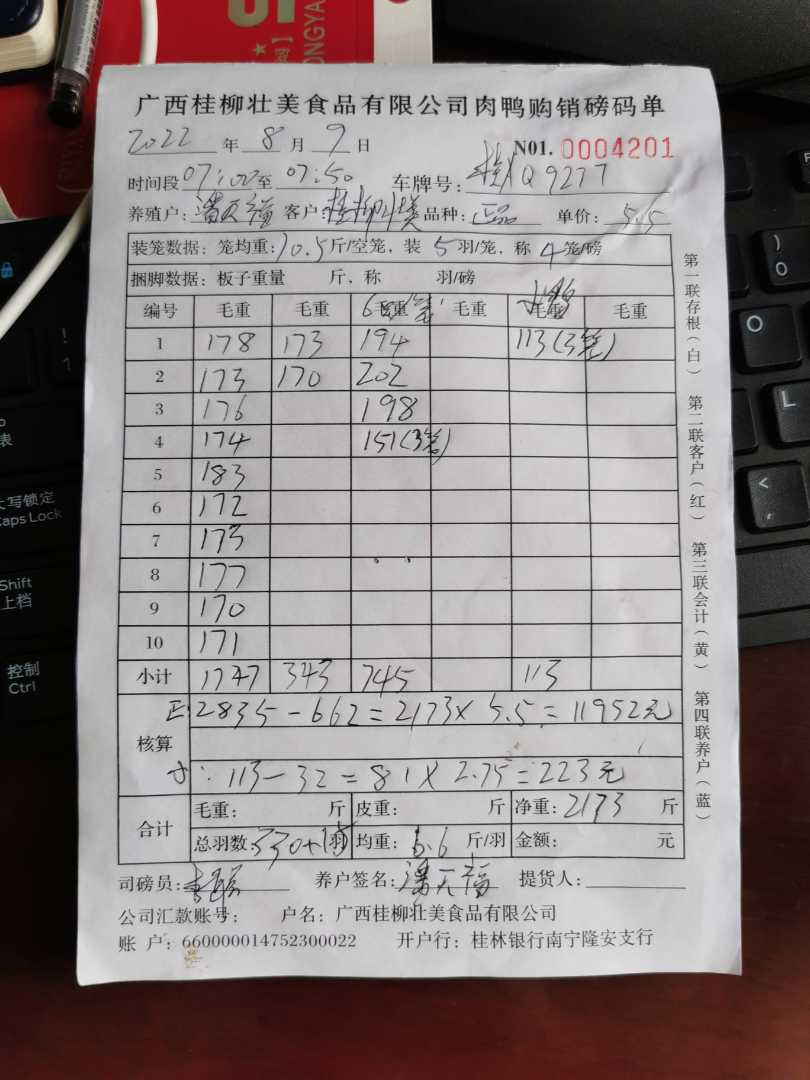 广西桂柳壮美食品有限公司肉鸭购销磅码单
2022 年 8 月 9 日 N01. 0004201
时间段 07:00 至 07:50 车牌号: 桂AQ9277
养殖户: 潘天福 客户: 桂柳 品种: 正品 单价: 5.5
装笼数据: 笼均重: 10.5 斤/空笼, 装 5 羽/笼, 称 4 笼/磅
捆脚数据: 板子重量 斤, 称 羽/磅
编号 毛重 毛重 毛重 毛重 毛重 毛重
1 178 173 194 113(3笼)
2 173 170 202
3 176 198
4 174 151(3笼)
5 183
6 172
7 173
8 177
9 170
10 171
小计 1747 343 745 113
核算
正 2835-662=2173×5.5=11952元
113-32=81×2.75=223元
合计
毛重: 斤 皮重: 斤 净重: 2173 斤
总羽数: 330+15 羽 均重: 6.6 斤/羽 金额: 元
司磅员: 养户签名: 潘天福 提货人:
公司汇款账号: 户名: 广西桂柳壮美食品有限公司
账 户: 660000014752300022 开户行: 桂林银行南宁隆安支行
第一联存根(白) 第二联客户(红) 第三联会计(黄) 第四联养户(蓝)
大写锁定
Caps Lock
Shift
上档
控制
Ctrl